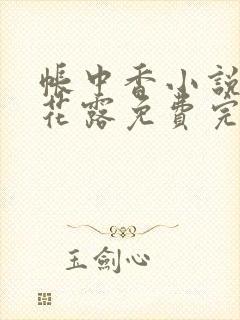 帳中香小說
花露免費完
玉劍心